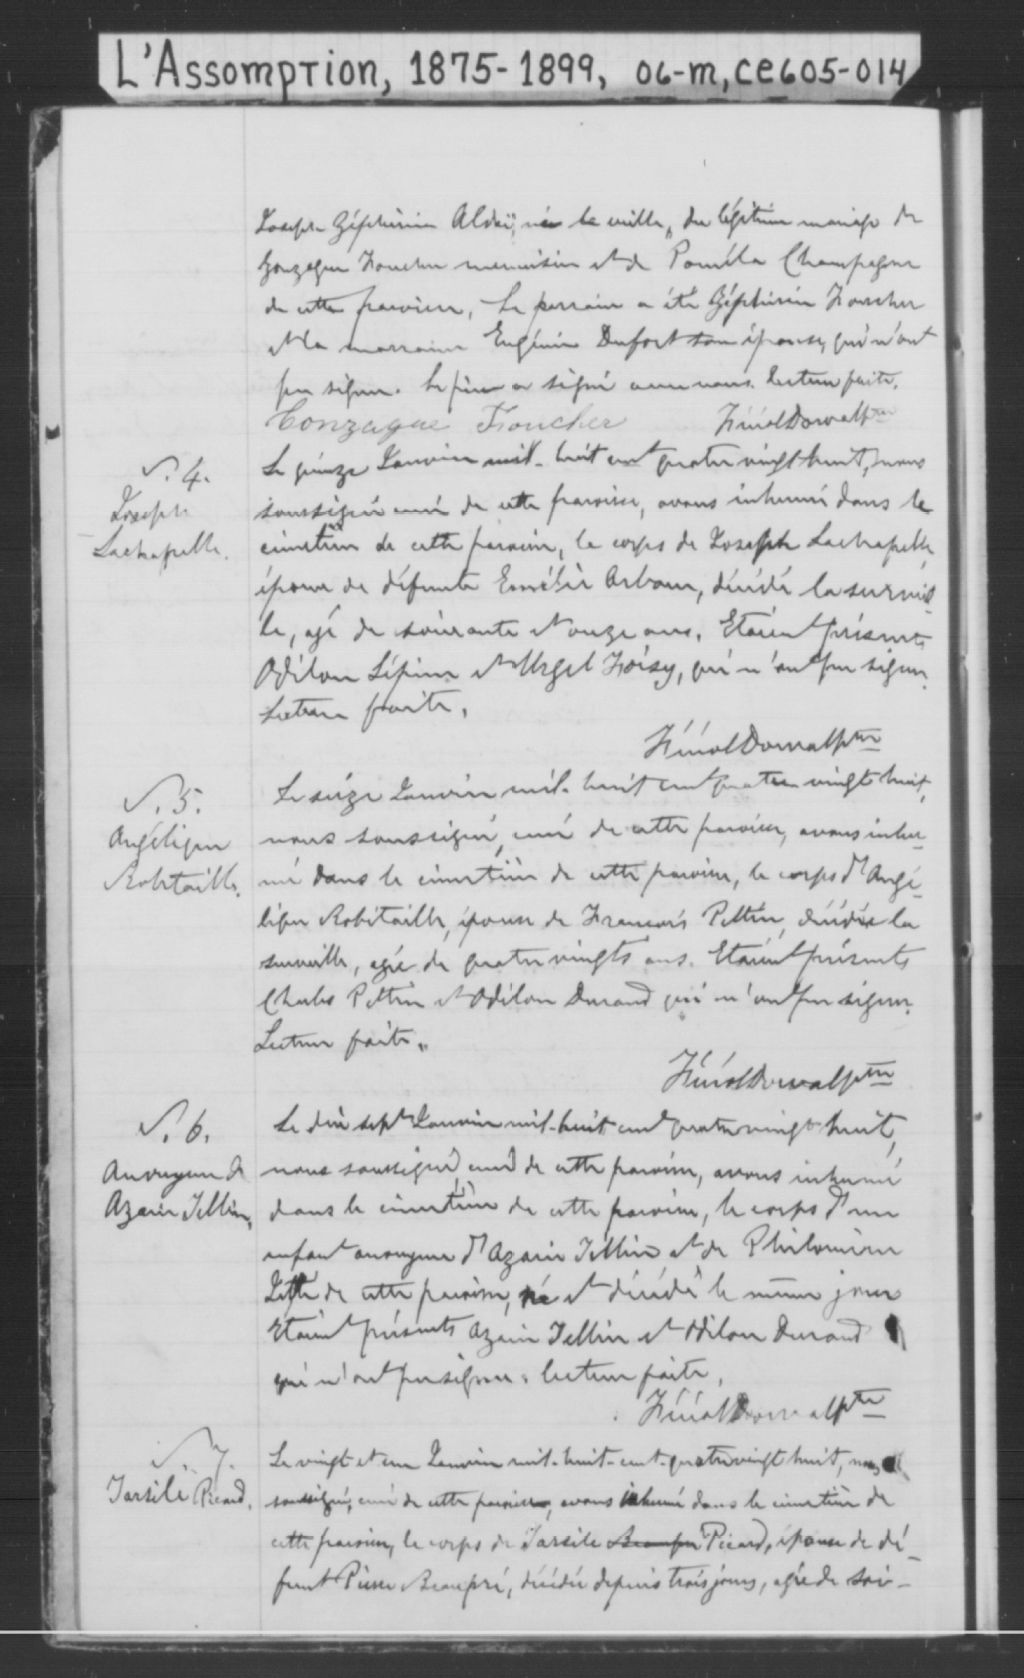 L'Assomption, 1875-1899, 06-m, CE605-014
Joseph Zéphirin Aldéi, né la veille, du légitime mariage de
Gonzague Foucher menuisier et de Paméla Champagne
de cette paroisse, Le parrain a été Zéphirin Foucher
et la marraine Eugénie Dufort son épouse, qui n'ont
pu signer. Le père a signé avec nous. Lecture faite.
Gonzague Foucher Dorval ptre
N. 4.
Joseph
Lachapelle.
Le quinze Janvier mil-huit cent quatre vingt huit, nous
soussigné curé de cette paroisse, avons inhumé dans le
cimetière de cette paroisse, le corps de Joseph Lachapelle,
époux de défunte Emélie Arbour, décédé la surveil-
le, agé de soixante et onze ans. Etaient présents
Odilon Lépine et Urgel Froisy, qui n'ont pu signer.
Lecture faite.
Dorval ptre
N. 5.
Angélique
Robitaille.
Le seize Janvier mil-huit cent quatre vingt huit,
nous soussigné, curé de cette paroisse, avons inhu-
mé dans le cimetière de cette paroisse, le corps d'Angé-
lique Robitaille, épouse de Francois Peltier, décédée la
surveille, agée de quatre vingts ans. Etaient présents
Charles Peltier et Odilon Durand qui n'ont pu signer.
Lecture faite.
Dorval ptre
N. 6.
Anonyme de
Azarie Tellier.
Le dix sept Janvier mil-huit cent quatre vingt huit,
nous soussigné curé de cette paroisse, avons inhumé
dans le cimetière de cette paroisse, le corps d'un
enfant anonyme d'Azarie Tellier et de Philomène
de cette paroisse, né et décédé le même jour
Etaient présents Azarie Tellier et Odilon Durand
qui n'ont pu signer. lecture faite.
Dorval ptre
N. 7.
Tarsile Picard.
Le vingt et un Janvier mil-huit-cent-quatre vingt huit, nous
soussigné, curé de cette paroisse, avons inhumé dans le cimetière de
cette paroisse, le corps de Tarsile Picard, épouse de dé-
funt Pierre Beaupré, décédée depuis trois jours, agée de soi-